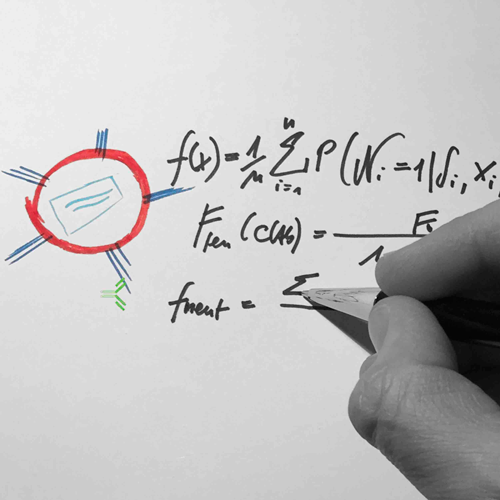 f(x) = 1/n Σ i=1 n P(Ni = 1 | δi, xi
Ften (c(Ab)) = F / 1
fneut = Σ